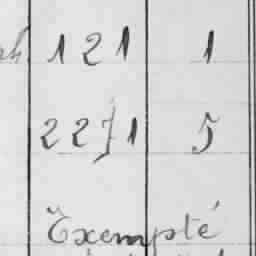 121 1
2271 5
Exempté